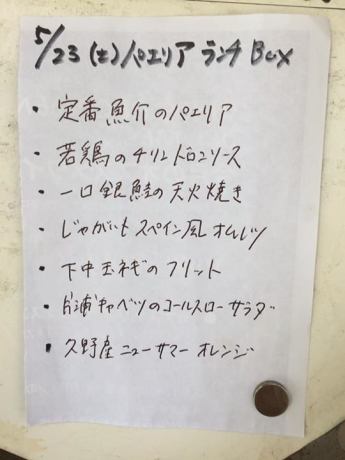 5/23 (土) パエリア ランチ Box
・ 定番 魚介のパエリア
・ 若鶏のチリンドロンソース
・ 一口銀鮭の天火焼き
・ じゃがいも スペイン風 オムレツ
・ 下中玉ネギのフリット
・ 片浦キャベツのコールスローサラダ
・ 久野産 ニューサマー オレンジ